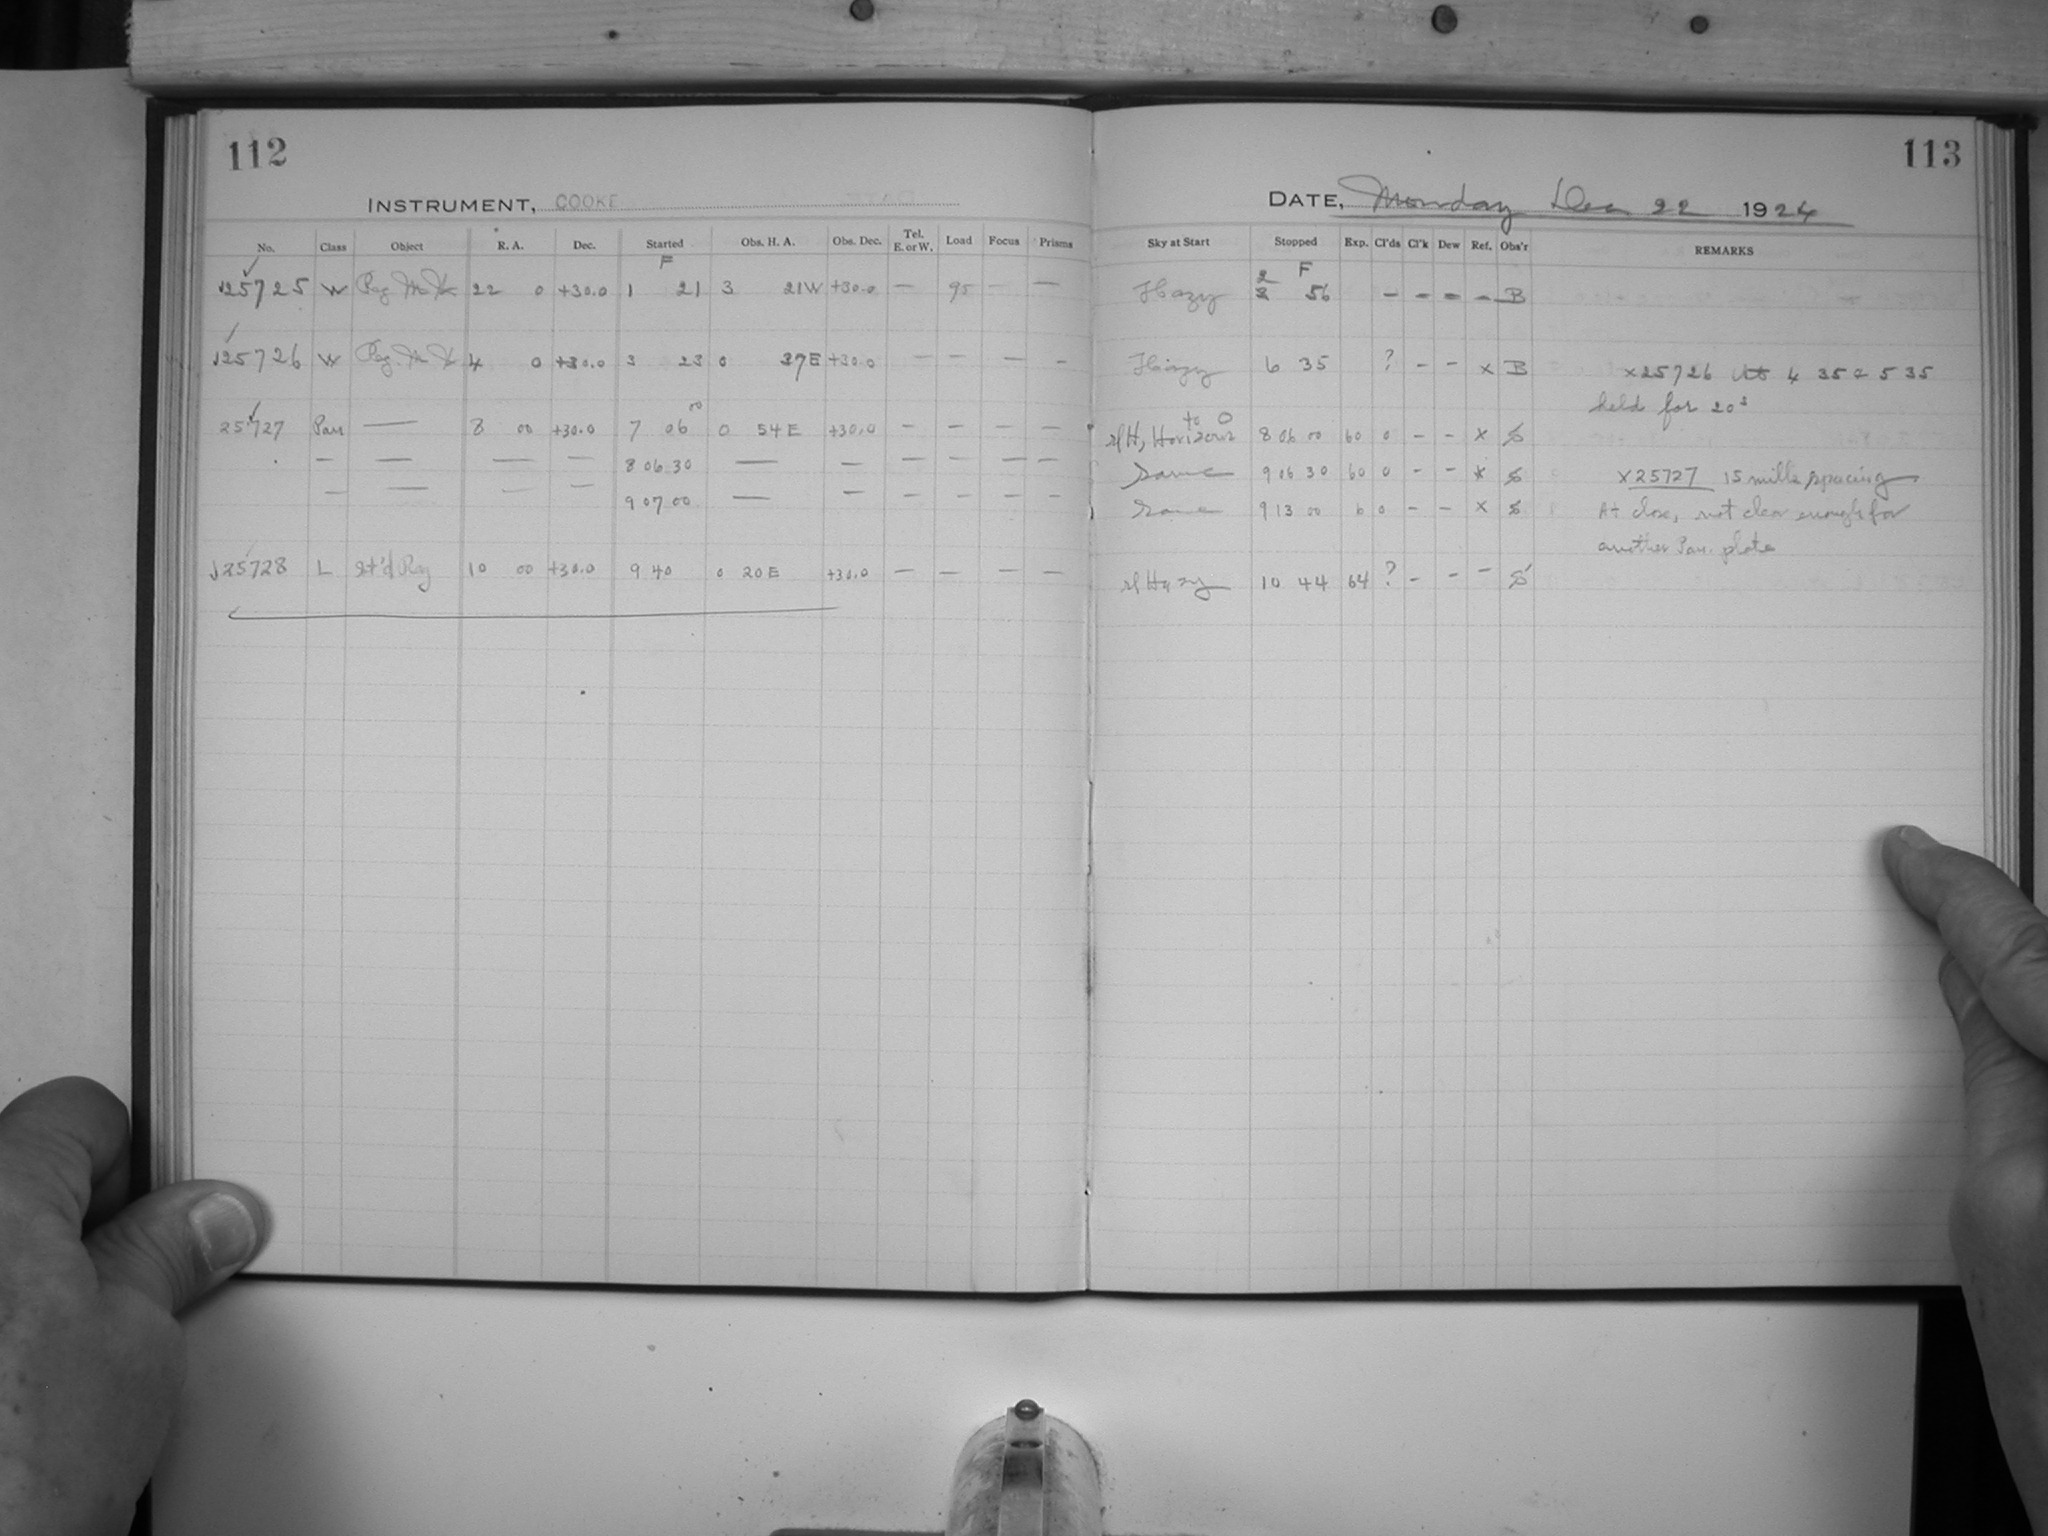 112
INSTRUMENT, COOKE
No. Class Object R. A. Dec. Started Obs. H. A. Obs. Dec. Tel. E. or W. Load Focus Prisms
F
25725 W 22 0 +30.0 1 21 3 21W +30.0 — 95 — —
25726 W 4 0 +30.0 3 23 0 37E +30.0 — — — —
25727 Par — 8 00 +30.0 7 06 00 0 54E +30.0 — — — —
— — — — 8 06 30 — — — — — —
— — — — 9 07 00 — — — — — —
25728 L St'd Reg 10 00 +30.0 9 40 0 20E +30.0 — — — —
113
DATE, Monday Dec 22 1924
Sky at Start Stopped Exp. Cl'ds Cl'k Dew Ref. Obs'r REMARKS
F
Hazy 2 56 — — — — B
Hazy 6 35 ? — — x B x25726 At 4 35 & 5 35
held for 20s
to 0
sl H, Horizon 8 06 00 60 0 — — x S
Same 9 06 30 60 0 — — x S x25727 15 mills spacing
Same 9 13 00 6 0 — — x S At close, not clear enough for
another Par. plate
sl Hazy 10 44 64 ? — — — S